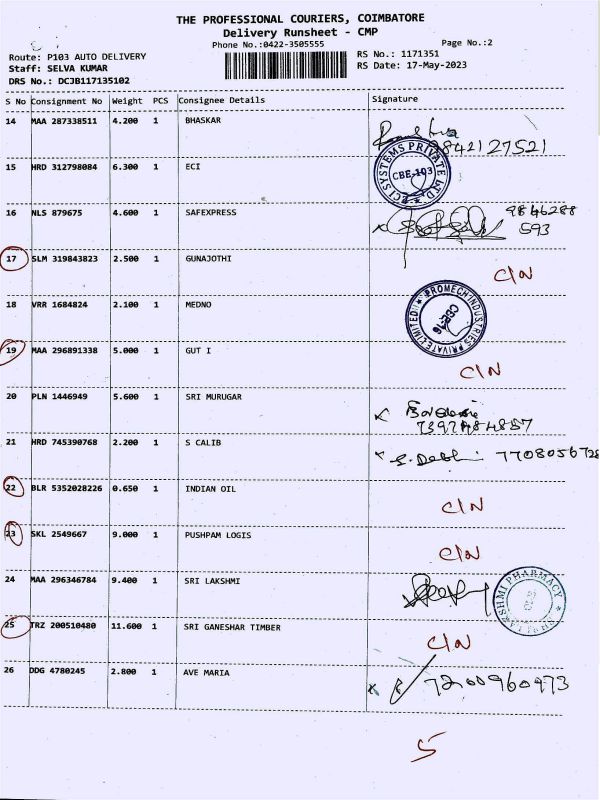 THE PROFESSIONAL COURIERS, COIMBATORE
Delivery Runsheet - CMP
Phone No.:0422-3505555
Page No.:2
Route: P103 AUTO DELIVERY
RS No.: 1171351
Staff: SELVA KUMAR
RS Date: 17-May-2023
DRS No.: DCJB117135102
S No Consignment No Weight PCS Consignee Details Signature
14 MAA 287338511 4.200 1 BHASKAR
9842127521
15 HRD 312798084 6.300 1 ECI
ECI SYSTEMS PRIVATE LTD
CBE-103
16 NLS 879675 4.600 1 SAFEXPRESS
9846288
593
17 SLM 319843823 2.500 1 GUNAJOTHI
C/N
18 VRR 1684824 2.100 1 MEDNO
PROMECH INDUSTRIES PRIVATE LIMITED
19 MAA 296891338 5.000 1 GUT I
C/N
20 PLN 1446949 5.600 1 SRI MURUGAR
21 HRD 745390768 2.200 1 S CALIB
7708056728
22 BLR 5352028226 0.650 1 INDIAN OIL
C/N
23 SKL 2549667 9.000 1 PUSHPAM LOGIS
C/N
24 MAA 296346784 9.400 1 SRI LAKSHMI
LAKSHMI PHARMACY
25 TRZ 200510480 11.600 1 SRI GANESHAR TIMBER
C/N
26 DDG 4780245 2.800 1 AVE MARIA
7200960973
5